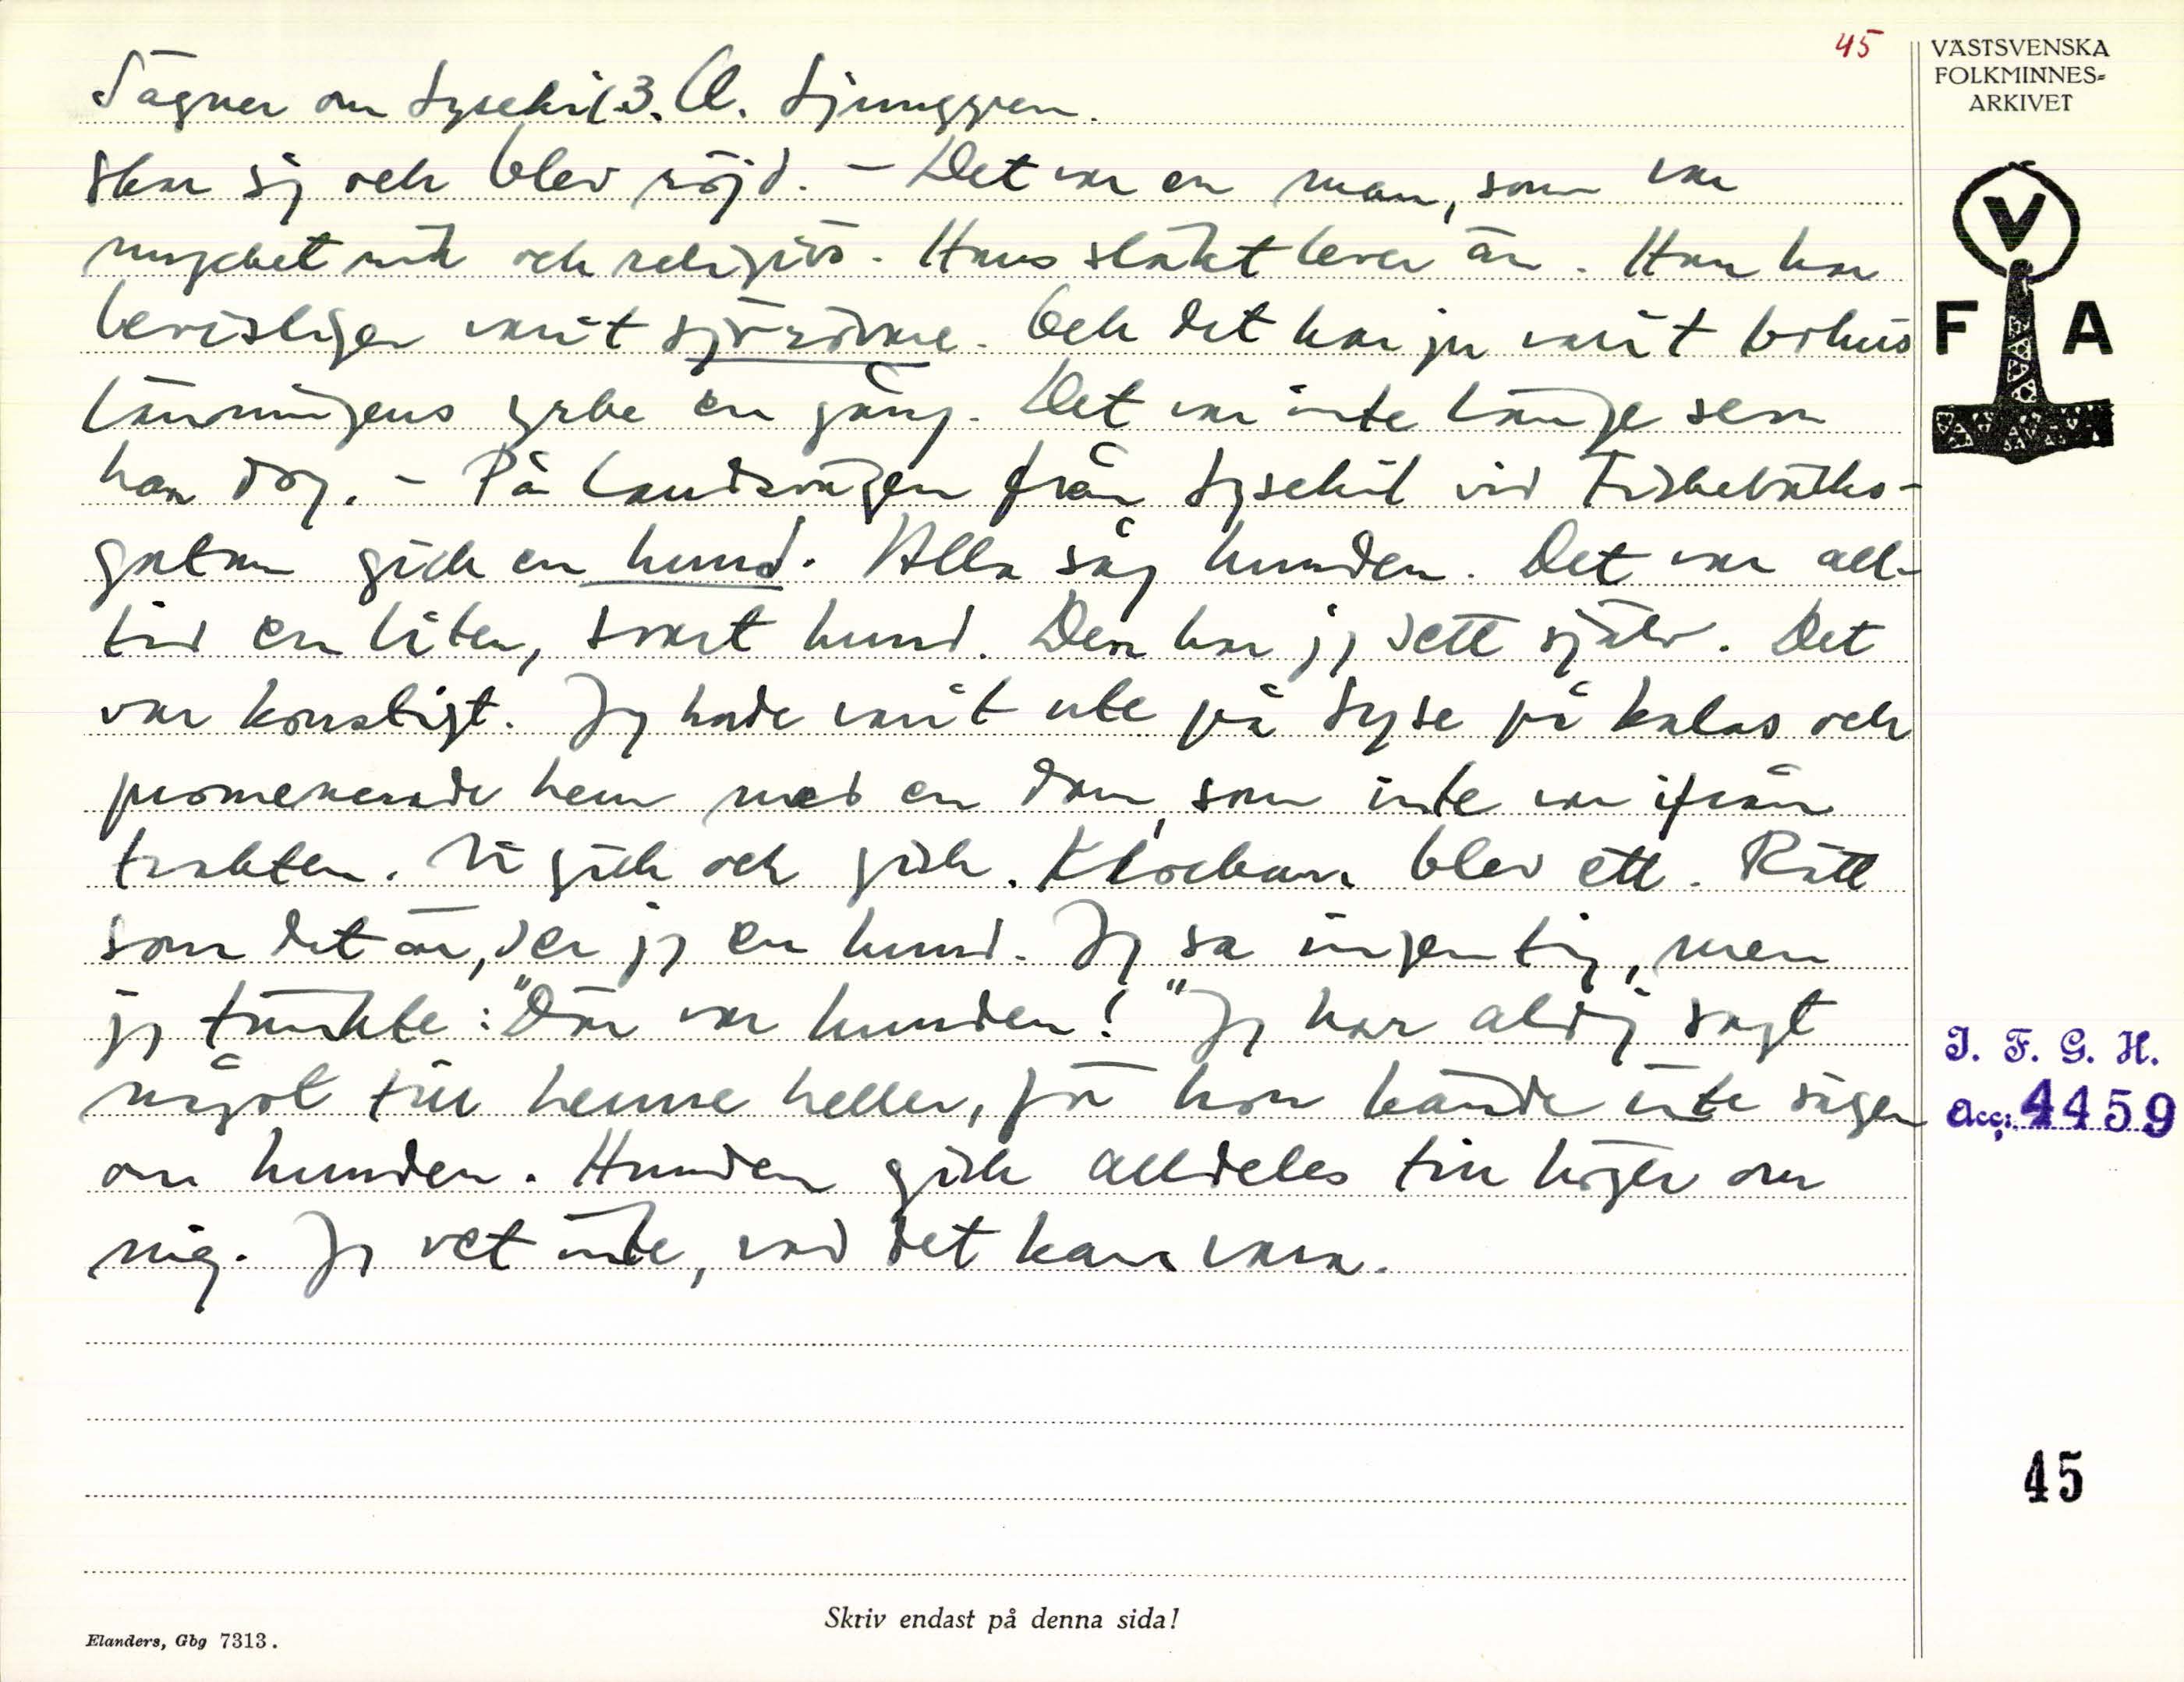 45
VÄSTSVENSKA
FOLKMINNES=
ARKIVET
Sägner om Lysekil. 3. A. Ljunggren.
skar sig och blev röjd. – Det var en man, som var
mycket rik och religiös. Hans släkt lever än. Han har
bevisligen varit sjörövare. Och det har ju varit bohus
länningens yrke en gång. Det var inte länge sen
han dog. – På landsvägen från Lysekil vid Fiskebäcks-
gatan gick en hund. Alla såg hunden. Det var all-
tid en liten, svart hund. Den har jag sett själv. Det
var konstigt. Jag hade varit ute på Lyse på kalas och
promenerade hem med en dam, som inte var ifrån
trakten. Vi gick och gick. Klockan blev ett. Rätt
som det är, ser jag en hund. Jag sa ingenting, men
jag tänkte: "Där var hunden!" Jag har aldrig sagt
något till henne heller, för hon kände inte sägen
om hunden. Hunden gick alldeles till höger om
mig. Jag vet inte, vad det kan vara.
V
F A
I. F. G. H.
Acc. 4459
45
Skriv endast på denna sida!
Elanders, Gbg 7313.